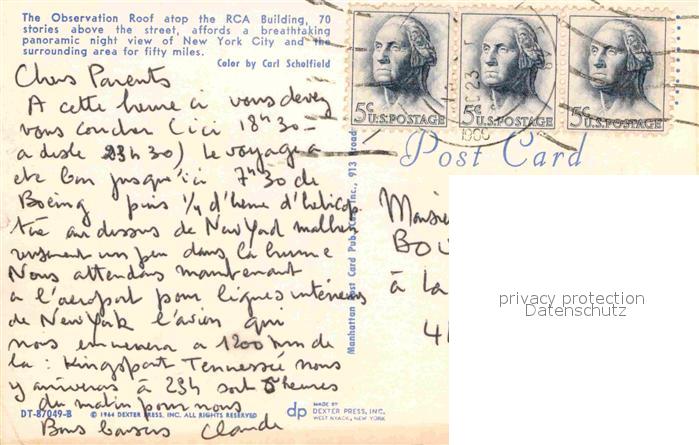 The Observation Roof atop the RCA Building, 70
stories above the street, affords a breathtaking
panoramic night view of New York City and the
surrounding area for fifty miles.
Color by Carl Scholfield
Chers Parents
A cette heure ci vous devez
vous coucher (ici 18h30 –
a disle 23h30) Le voyage a
ete bon jusqu'ici 7h30 de
Boeing puis 1/4 d'heure d'helicop
tère au dessus de New York malheu
reusement un peu dans la brume
Nous attendons maintenant
a l'aeroport pour lignes intérieures
de New York l'avion qui
nous emmenera a 1200 km de
la : Kingsport Tennessee nous
y arriverons à 23h soit 5 heures
du matin pour nous
Bons baisers Claude
DT-87049-B
© 1964 DEXTER PRESS, INC. ALL RIGHTS RESERVED
dp
MADE BY
DEXTER PRESS, INC.
WEST NYACK, NEW YORK
Manhattan Post Card Pub. Co., Inc., 913 Broad
5c U.S. POSTAGE
5c U.S. POSTAGE
5c U.S. POSTAGE
23
1966
Post Card
Monsie
BOU
à la
41
privacy protection
Datenschutz